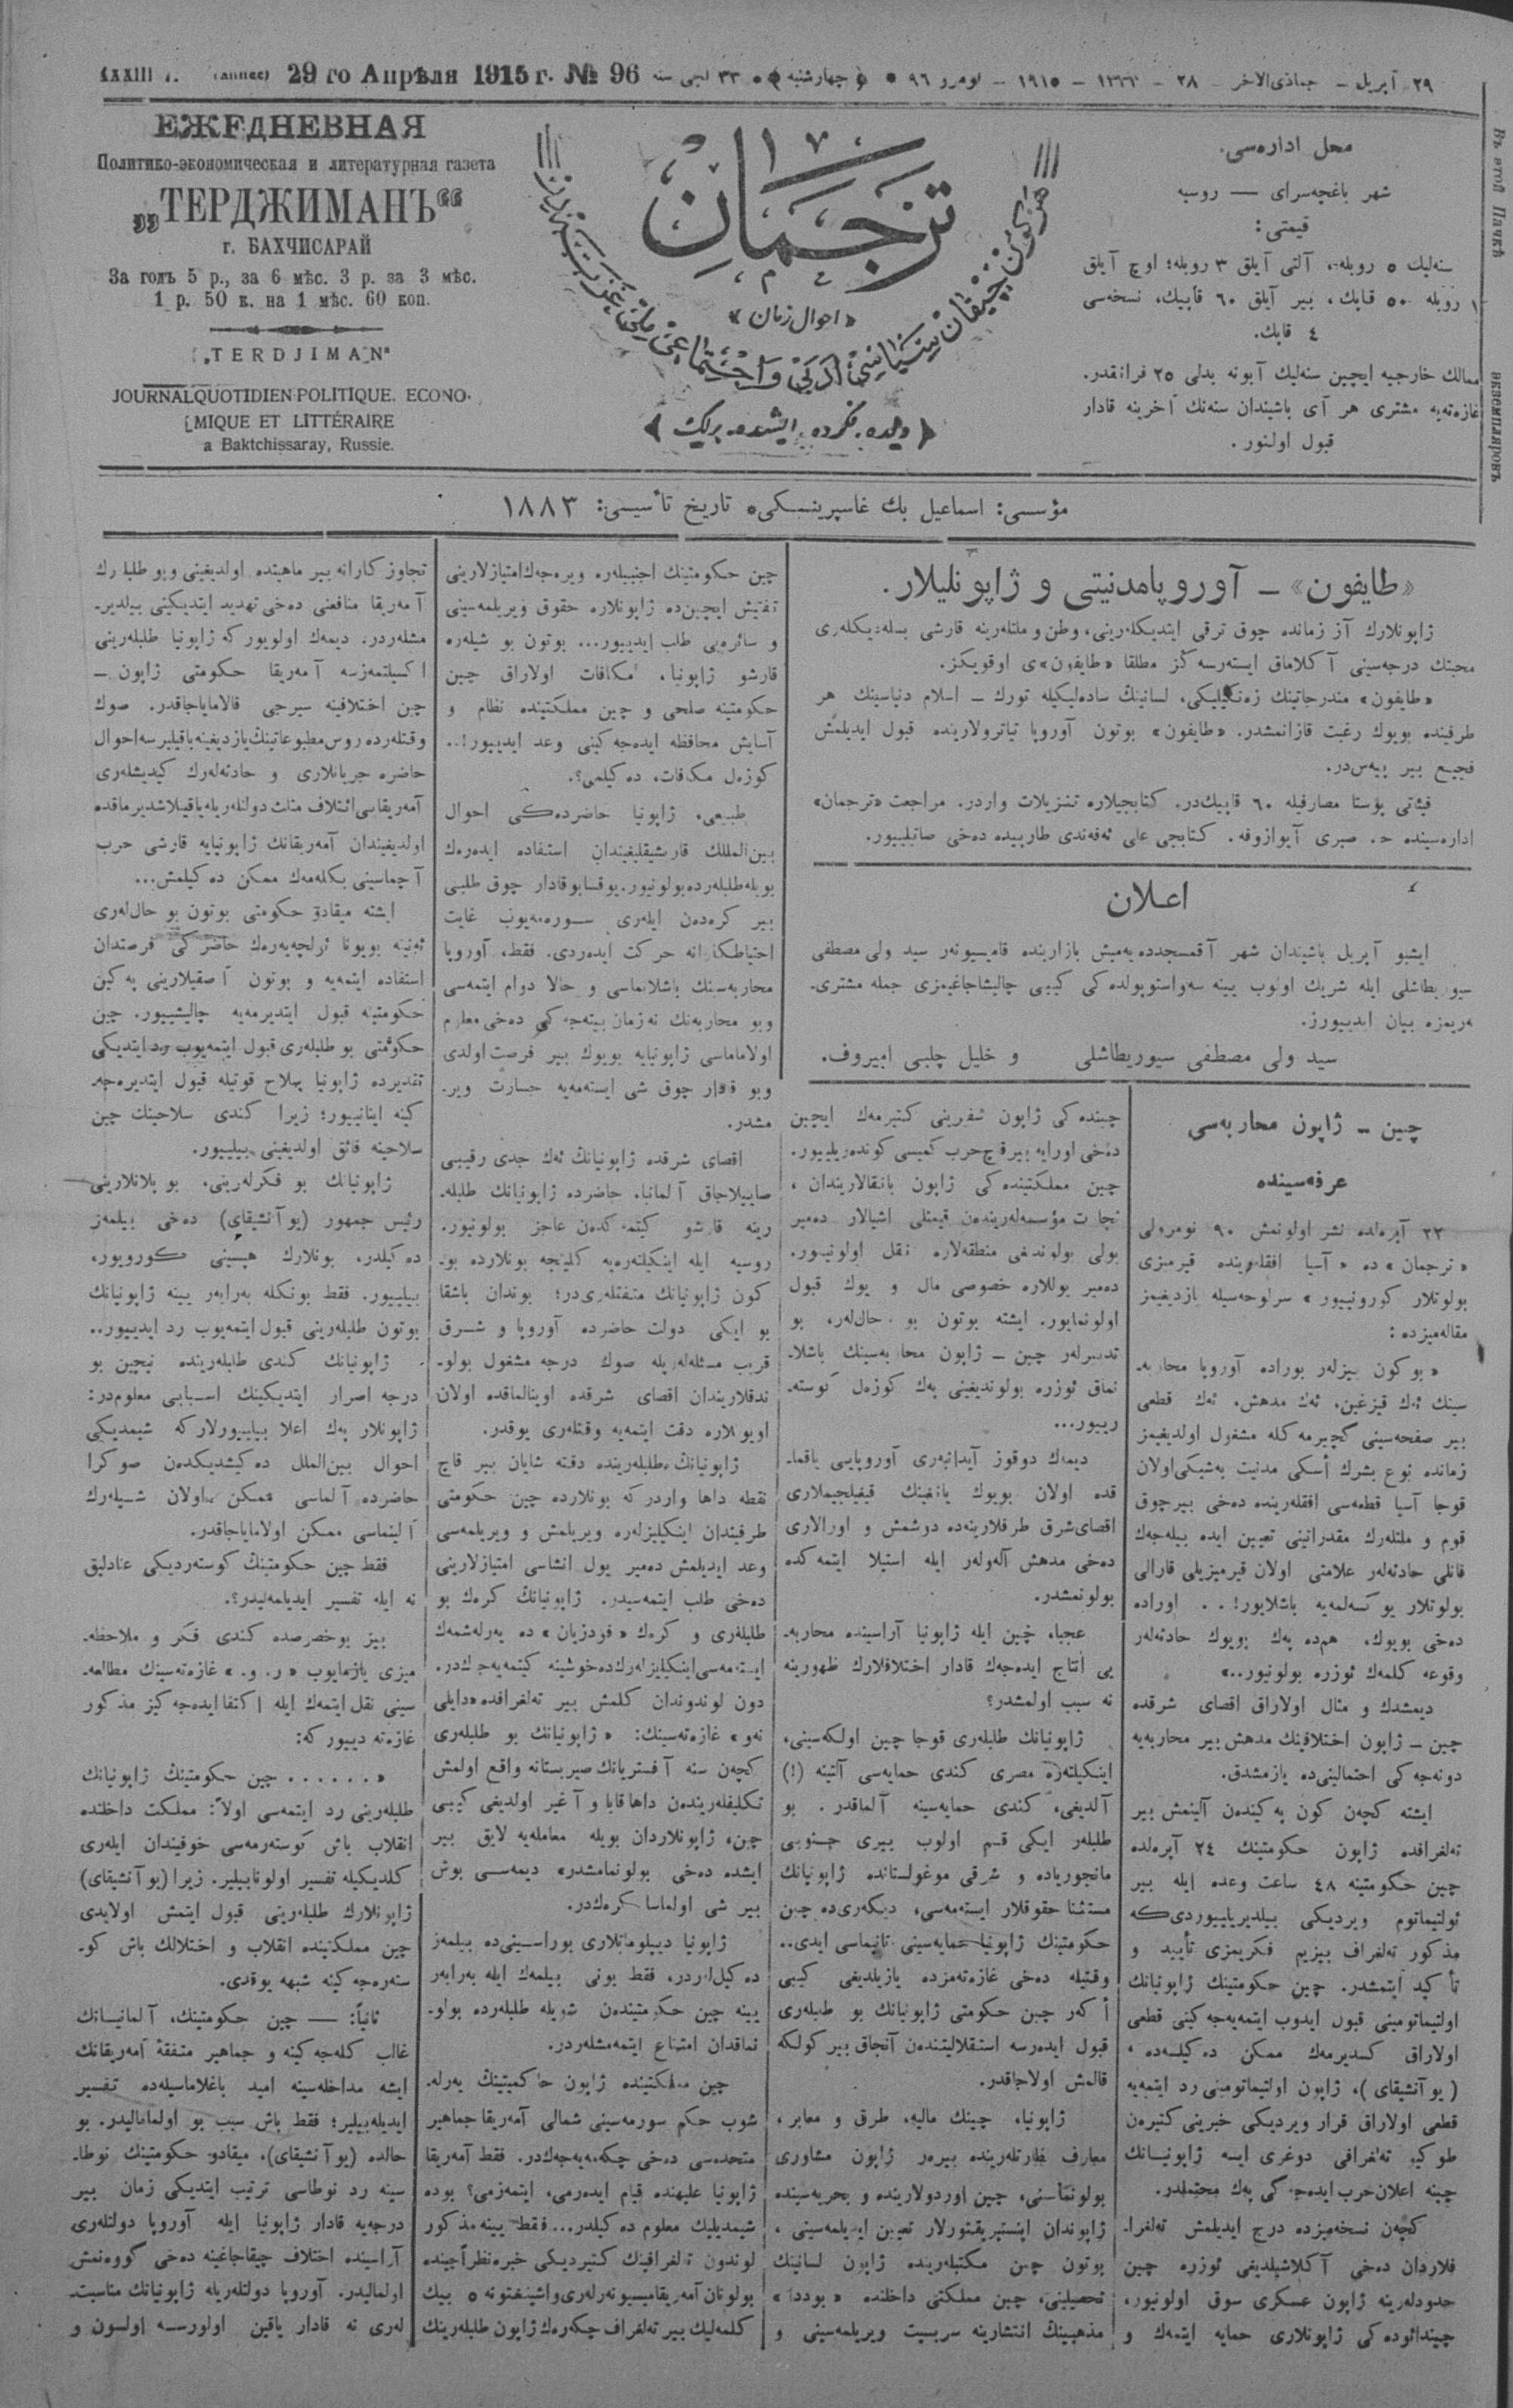 29 го Апрѣля 1915 г. № 96
٢٩ آپريل – جماذی‌الاخر – ٢٨ – – ١٩١٥ – نومرو ٩٦ چهارشنبه ٣٣ لجی سنه
ЕЖЕДНЕВНАЯ
Политико-экономическая и литературная газета
„ТЕРДЖИМАНЪ“
г. БАХЧИСАРАЙ
За годъ 5 р., за 6 мѣс. 3 р. за 3 мѣс.
1 р. 50 к. на 1 мѣс. 60 коп.
„TERDJIMAN“
JOURNAL QUOTIDIEN POLITIQUE. ECONO-
MIQUE ET LITTÉRAIRE
a Baktchissaray, Russie.
ترجمان
«احوال زمان»
ديلده، فكرده، ايشده بريك
محل اداره‌سی.
شهر باغچه‌سرای — روسيه
قيمتی:
سنه‌ليك ٥ روبله، آلتی آيلق ٣ روبله؛ اوچ آيلق
١ روبله ٥٠ قاپك، بير آيلق ٦٠ قاپيك، نسخه‌سی
٤ قاپك.
ممالك خارجيه ايچين سنه‌ليك آبونه بدلی ٢٥ فرانقدر.
غازه‌ته‌يه مشتری هر آی باشيندان سنه‌نك آخرينه قادار
قبول اولنور.
Въ этой Пачкѣ
экземпляровъ
مؤسسی: اسماعيل بك غاسپرينسكی، تاريخ تأسيسی: ١٨٨٣
«طايفون» – آوروپا مدنيتی و ژاپونليلار.
ژاپونلارك آز زمانده چوق ترقی ايتديكلرينی، وطن و ملتلرينه قارشی بسله‌ديكله‌ری
محبتك درجه‌سينی آكلاماق ايسته‌رسه‌كز مطلقا «طايفون»ی اوقويكز.
«طايفون» مندرجاتينك زه‌نگيليكی، لسانينك ساده‌ليكيله تورك – اسلام دنياسينك هر
طرفينده بويوك رغبت قازانمشدر. «طايفون» بوتون آوروپا تياترولارينده قبول ايديلمش
فجيع بير پيه‌س‌در.
فيئتی پوستا مصارفيله ٦٠ قاپيك‌در. كتابجيلاره تنزيلات واردر. مراجعت «ترجمان»
اداره‌سينده ح. صبری آيوازوفه. كتابجی علی ئه‌فه‌ندی طارپيده دخی صاتيلييور.
اعلان
ايشبو آپريل باشيندان شهر آقمسجدده يه‌ميش بازارينده قاميسيونه‌ر سيد ولی مصطفی
سيوريطاشلی ايله شريك اولوب يينه سه‌واستوپولده‌كی كيبی چاليشاجاغيمزی جمله مشتری-
له‌ريمزه بيان ايدييورز.
سيد ولی مصطفی سيوريطاشلی و خليل چلبی اميروف.
چين – ژاپون محاربه‌سی
عرفه‌سينده
٢٢ آپره‌لده نشر اولونمش ٩٠ نومرولی
«ترجمان» ده «آسيا افقلرينده قيرمزی
بولوتلار كورونييور» سرلوحه‌سيله يازديغيمز
مقاله‌ميزده:
«بوكون بيزلر بوراده آوروپا محاربه-
سينك ئه‌ك قيزغين، ئه‌ك مدهش، ئه‌ك قطعی
بير صفحه‌سينی گچيرمه‌كله مشغول اولديغيمز
زمانده نوع بشرك أسكی مدنيت به‌شيكی اولان
قوجا آسيا قطعه‌سی افقلرينده ده‌خی بير چوق
قوم و ملتلرك مقدراتينی تعيين ايده بيله‌جه‌ك
قانلی حادثه‌لر علامتی اولان قيرميزيلی قارالی
بولوتلار يوكسه‌لمه‌يه باشلايور!.. اوراده
ده‌خی بويوك، هم‌ده په‌ك بويوك حادثه‌لر
وقوعه كلمه‌ك ئوزره بولونيور..»
ديمشدك و مثال اولاراق اقصای شرقده
چين – ژاپون اختلافينك مدهش بير محاربه‌يه
دونه‌جه‌كی احتمالينی‌ده يازمشدق.
ايشته كچه‌ن كون په‌كينده‌ن آلينمش بير
ته‌لغرافده ژاپون حكومتينك ٢٤ آپره‌لده
چين حكومتينه ٤٨ ساعت وعده ايله بير
ئولتيماتوم ويرديكی بيلديريلييوردی‌كه
مذكور ته‌لغراف بيزيم فكريمزی تأييد و
تأكيد ايتمشدر. چين حكومتينك ژاپونيانك
اولتيماتومينی قبول ايدوب ايتمه‌يه‌جه‌كينی قطعی
اولاراق كسديرمه‌ك ممكن ده‌كيلسه‌ده،
(يوآنشيقای)، ژاپون اولتيماتومينی رد ايتمه‌يه
قطعی اولاراق قرار ويرديكی خبرينی كتيره‌ن
طوكيو ته‌لغرافی دوغری ايسه ژاپونيانك
چينه اعلان حرب ايده‌جه‌كی په‌ك محتملدر.
كچه‌ن نسخه‌ميزده درج ايديلمش ته‌لغرا-
فلاردان ده‌خی آكلاشيلديغی ئوزره چين
حدودله‌رينه ژاپون عسكری سوق اولونيور،
چيندائوده‌كی ژاپونلاری حمايه ايتمه‌ك و
چينده‌كی ژاپون سفيرينی كتيرمه‌ك ايچين
ده‌خی اورايه بير قچ حرب كميسی كونده‌ريلييور.
چين مملكتينده‌كی ژاپون بانقالاريندان،
تجارت مؤسسه‌له‌رينده‌ن قيمتلی اشيالار ده‌مير
يولی بولونديغی منطقه‌لاره نقل اولونييور.
ده‌مير يوللاره خصوصی مال و يوك قبول
اولونمايور. ايشته بوتون بو حال‌لر، بو
تدبيرلر چين – ژاپون محاربه‌سينك باشلا-
نماق ئوزره بولونديغينی په‌ك كوزه‌ل كوسته-
رييور...
ديمه‌ك دوقوز آيدانبه‌ری آوروپايی ياقما-
قده اولان بويوك يانغينك قيغيلجيملاری
اقصای شرق طرفلارينه‌ده دوشمش و اورالاری
ده‌خی مدهش آله‌ولر ايله استيلا ايتمه‌كده
بولونمشدر.
عجبا، چين ايله ژاپونيا آراسينده محاربه-
يی انتاج ايده‌جه‌ك قادار اختلافلارك ظهورينه
نه سبب اولمشدر؟
ژاپونيانك طلبله‌ری قوجا چين اولكه‌سينی،
اينكيلته‌ره مصری كندی حمايه‌سی آلتينه (!)
آلديغی، كندی حمايه‌سينه آلماقدر. بو
طلبلر ايكی قسم اولوب بيری جنوبی
مانجورياده و شرقی موغولستانده ژاپونيانك
مستثنا حقوقلار ايسته‌مه‌سی، ديكه‌ری‌ده چين
حكومتينك ژاپونيا حمايه‌سينی تانيماسی ايدی..
وقتيله ده‌خی غازه‌ته‌مزده يازيلديغی كيبی
أكه‌ر چين حكومتی ژاپونيانك بو طلبله‌ری
قبول ايده‌رسه استقلاليتنده‌ن آنجاق بير كولكه
قالمش اولاجاقدر.
ژاپونيا، چينك ماليه، طرق و معابر،
معارف نظارتله‌رينده بيره‌ر ژاپون مشاوری
بولونماسنی، چين اوردولارينده و بحريه‌سينده
ژاپوندان اينستيريقتورلار تعيين ايديلمه‌سينی،
بوتون چين مكتبله‌رينده ژاپون لسانينك
تحصيلينی، چين مملكتی داخلنده «بوددا»
مذهبينك انتشارينه سربسيت ويريلمه‌سينی و
چين حكومتينك اجنبيله‌ره ويره‌جه‌ك امتيازلارينی
تفتيش ايچين‌ده ژاپونلاره حقوق ويريلمه‌سينی
و سائره‌يی طلب ايدييور... بوتون بو شيله‌ره
قارشو ژاپونيا، مكافات اولاراق چين
حكومتينه صلحی و چين مملكتينده نظام و
آسايش محافظه ايده‌جه‌كينی وعد ايدييور!..
كوزه‌ل مكافات، ده‌كيلمی؟.
طبيعی، ژاپونيا حاضرده‌كی احوال
بين‌المللك قاريشيقليغيندان استفاده ايده‌ره‌ك
بويله طلبله‌رده بولونيور. يوقسا بو قادار چوق طلبی
بير كره‌ده‌ن ايله‌ری سوره‌مه‌يوب غايت
احتياطكارانه حركت ايده‌ردی. فقط، آوروپا
محاربه‌سينك باشلانماسی و حالا دوام ايتمه‌سی
وبو محاربه‌نك نه زمان بيته‌جه‌كی ده‌خی معلوم
اولاماماسی ژاپونيايه بويوك بير فرصت اولدی
وبو قادار چوق شی ايسته‌مه‌يه جسارت وير-
مشدر.
اقصای شرقده ژاپونيانك ئه‌ك جدی رقيبی
صاييلاجاق آلمانيا، حاضرده ژاپونيانك طلبله-
رينه قارشو كيتمه‌كده‌ن عاجز بولونيور.
روسيه ايله اينكيلته‌ره‌يه كلينجه بونلارده بو-
كون ژاپونيانك متفقله‌ری‌در؛ بوندان باشقا
بو ايكی دولت حاضرده آوروپا و شرق
قريب مسئله‌له‌ريله صوك درجه مشغول بولو-
ندقلاريندان اقصای شرقده اوينالماقده اولان
اويونلاره دقت ايتمه‌يه وقتله‌ری يوقدر.
ژاپونيانك طلبله‌رينده دقته شايان بير قاچ
نقطه داها واردر كه بونلارده چين حكومتی
طرفيندان اينكيليزله‌ره ويريلمش و ويريلمه‌سی
وعد ايديلمش ده‌مير يول انشاسی امتيازلارينی
ده‌خی طلب ايتمه‌سيدر. ژاپونيانك كره‌ك بو
طلبله‌ری و كره‌ك «فودزيان» ده يه‌رله‌شمه‌ك
ايسته‌مه‌سی اينكيليزله‌رك‌ده خوشينه كيتمه‌يه‌جه‌ك‌در.
دون لوندوندان كلمش بير ته‌لغرافده «دايلی
نه‌و» غازه‌ته‌سينك: «ژاپونيانك بو طلبله‌ری
كچه‌ن سنه آفستريانك صيربستانه واقع اولمش
تكليفله‌رينده‌ن داها قابا و آغير اولديغی كيبی
چين، ژاپونلاردان بويله معامله‌يه لايق بير
ايشده ده‌خی بولونمامشدر» ديمه‌سی بوش
بير شی اولماسا كره‌ك‌در.
ژاپونيا ديپلوماتلاری بوراسينی‌ده بيلمه‌ز
ده‌كيل‌لردر، فقط بونی بيلمه‌ك ايله به‌رابه‌ر
يينه چين حكومتينده‌ن شويله طلبله‌رده بولو-
نماقدان امتناع ايتمه‌مشله‌ردر.
چين مملكتنده ژاپون حاكميتينك يه‌رله-
شوب حكم سورمه‌سينی شمالی آمه‌ريقا جماهير
متحده‌سی ده‌خی چكه‌مه‌يه‌جه‌ك‌در. فقط آمه‌ريقا
ژاپونيا عليهنده قيام ايده‌رمی، ايتمه‌زمی؟ بوده
شيمديليك معلوم ده‌كيلدر... فقط يينه مذكور
لوندون ته‌لغرافينك كتيرديكی خبره نظرا چينده
بولونان آمه‌ريقا ميسيونه‌رله‌ری واشينغتونه ٥ بيك
كلمه‌ليك بير ته‌لغراف چكه‌ره‌ك ژاپون طلبله‌رينك
تجاوزكارانه بير ماهيتده اولديغينی وبو طلبلرك
آمه‌ريقا منافعنی ده‌خی تهديد ايتديكينی بيلدير-
مشله‌ردر. ديمه‌ك اولويور كه ژاپونيا طلبله‌رينی
اكسيلتمه‌زسه آمه‌ريقا حكومتی ژاپون –
چين اختلافينه سيرجی قالاماياجاقدر. صوك
وقتله‌رده روس مطبوعاتينك يازديغينه باقيليرسه احوال
حاضره جريانلاری و حادثه‌له‌رك كيديشله‌ری
آمه‌ريقايی ائتلاف مثلث دولتله‌ريله ياقينلاشديرماقده
اولديغيندان آمه‌ريقانك ژاپونيايه قارشی حرب
آچماسينی بكله‌مه‌ك ممكن ده‌كيلمش...
ايشته ميقادو حكومتی بوتون بو حال‌له‌ری
ئه‌نينه بويونا ئولچه‌يه‌ره‌ك حاضركی فرصتدان
استفاده ايتمه‌يه و بوتون آصقيلارينی په‌كين
حكومتينه قبول ايتديرمه‌يه چاليشييور. چين
حكومتی بو طلبله‌ری قبول ايتمه‌يوب رد ايتديكی
تقديرده ژاپونيا سلاح قوتيله قبول ايتديره‌جه-
كينه اينانييور؛ زيرا كندی سلاحينك چين
سلاحينه فائق اولديغينی بيلييور.
ژاپونيانك بو فكرله‌رينی، بو پلانلارينی
رئيس جمهور (يوآنشيقای) ده‌خی بيلمه‌ز
ده‌كيلدر، بونلارك هپسينی كورويور،
بيلييور. فقط بونكله به‌رابه‌ر يينه ژاپونيانك
بوتون طلبله‌رينی قبول ايتمه‌يوب رد ايدييور..
ژاپونيانك كندی طلبله‌رينده نيچين بو
درجه اصرار ايتديكينك اسبابی معلوم‌در:
ژاپونلار په‌ك اعلا بيلييورلار كه شيمديكی
احوال بين‌الملل ده‌كيشديكده‌ن صوكرا
حاضرده آلماسی ممكن اولان شيله‌رك
آلينماسی ممكن اولاماياجاقدر.
فقط چين حكومتينك كوسته‌رديكی عنادليق
نه ايله تفسير ايديلمه‌ليدر؟.
بيز بو خصوصده كندی فكر و ملاحظه-
ميزی يازمايوب «ر. و.» غازه‌ته‌سينك مطالعه-
سينی نقل ايتمه‌ك ايله اكتفا ايده‌جه‌كيز مذكور
غازه‌ته دييور كه:
«...... چين حكومتينك ژاپونيانك
طلبله‌رينی رد ايتمه‌سی اولاً: مملكت داخلنده
انقلاب باش كوسته‌رمه‌سی خوفيندان ايله‌ری
كلديكيله تفسير اولونابيلير. زيرا (يوآنشيقای)
ژاپونلارك طلبله‌رينی قبول ايتمش اولايدی
چين مملكتينده انقلاب و اختلالك باش كو-
ستره‌جه‌كينه شبهه يوقدی.
ثانياً: — چين حكومتينك، آلمانيانك
غالب كله‌جه‌كينه و جماهير متفقه آمه‌ريقانك
ايشه مداخله‌سينه اميد باغلاماسيله‌ده تفسير
ايديله‌بيلير؛ فقط باش سبب بو اولماماليدر. بو
حالده (يوآنشيقای)، ميقادو حكومتينك نوطا-
سينه رد نوطاسی ترتيب ايتديكی زمان بير
درجه‌يه قادار ژاپونيا ايله آوروپا دولتله‌ری
آراسينده اختلاف چيقاجاغينه ده‌خی گووه‌نمش
اولماليدر. آوروپا دولتله‌ريله ژاپونيانك مناسبت-
له‌ری نه قادار ياقين اولورسه اولسون و